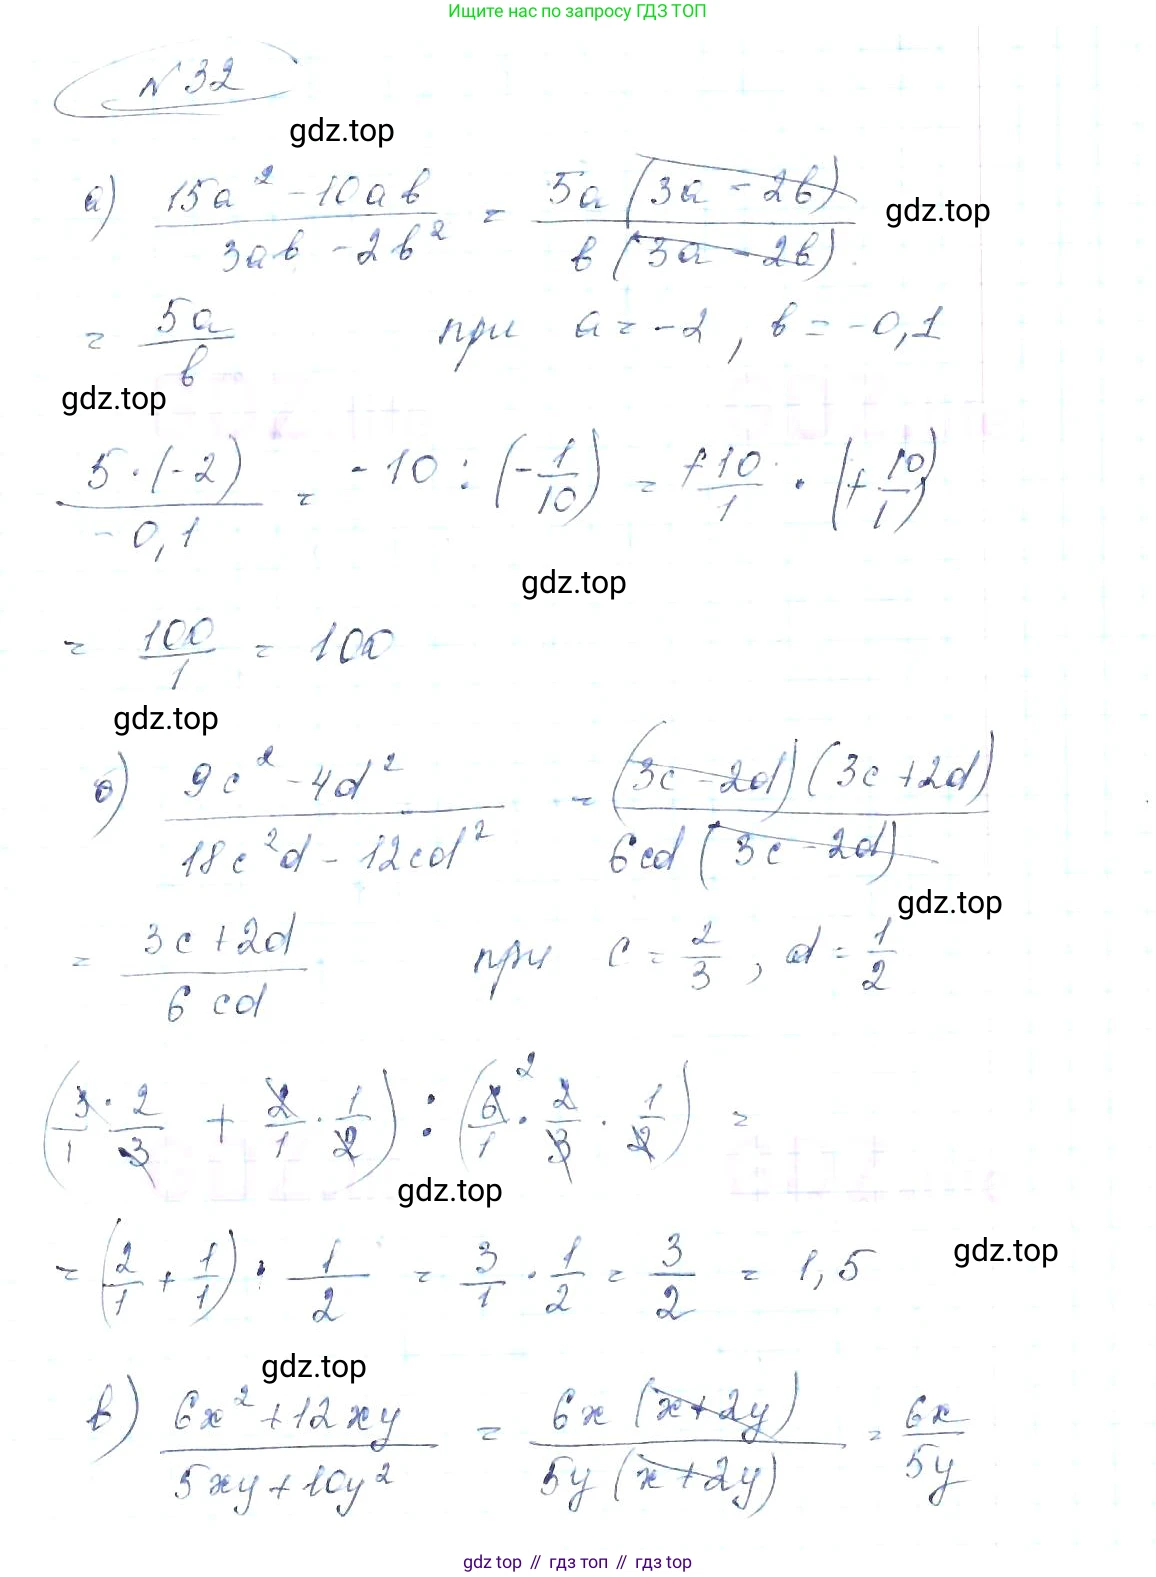 Ищите нас по запросу ГДЗ ТОП
№32
gdz.top
а) (15a² - 10ab)/(3ab - 2b²) = (5a(3a - 2b))/(b(3a - 2b))
gdz.top
= 5a/b при a = -2, b = -0,1
gdz.top
(5·(-2))/(-0,1) = -10 : (-1/10) = +10/1 · (+10/1)
gdz.top
= 100/1 = 100
gdz.top
б) (9c² - 4d²)/(18c²d - 12cd²) = ((3c - 2d)(3c + 2d))/(6cd(3c - 2d))
gdz.top
= (3c + 2d)/(6cd) при c = 2/3, d = 1/2
(3/1 · 2/3 + 2/1 · 1/2) : (6/1 ² · 2/3 · 1/2) =
gdz.top
= (2/1 + 1/1) · 1/2 = 3/1 · 1/2 = 3/2 = 1,5
gdz.top
gdz.top
в) (6x² + 12xy)/(5xy + 10y²) = (6x(x + 2y))/(5y(x + 2y)) = 6x/5y
gdz top // гдз топ // гдз top